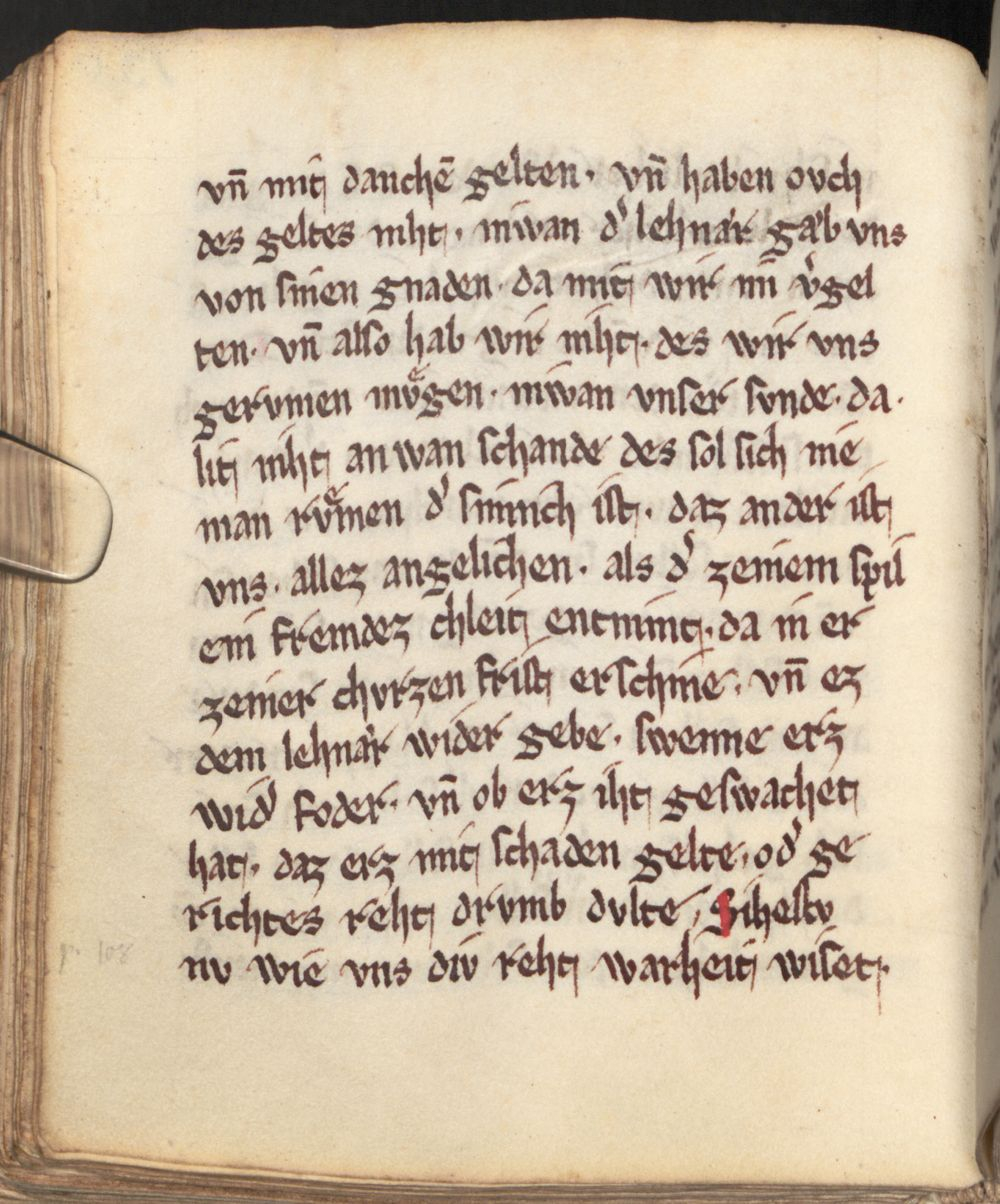 vn̄ mit danchē gelten · vn̄ haben ovch
des geltes niht · niwan d᾽ lehnær gæb vns
von sinen gnaden · da mit wir im v᾽gel
ten · vn̄ also hab wir niht · des wir vns
gervmen mvͤgen · niwan vnser svnde · da ·
lit niht an wan schande des sol sich nie
man rvͤmen d᾽ sinnich ist · daz ander ist
vns · allez angelichen · als d᾽ zeinem spil
ein fremdez chleit entnimt · da in er
zeiner chvrzen frist erschine · vn̄ ez
dem lehnær wider gebe · swenne erz
wid᾽ foder · vn̄ ob erz iht geswachet
hat · daz erz mit schaden gelte · od᾽ ge
richtes reht drvmb dvlte · Sihestv
nv wie vns div reht warheit wiset ·
p. 108